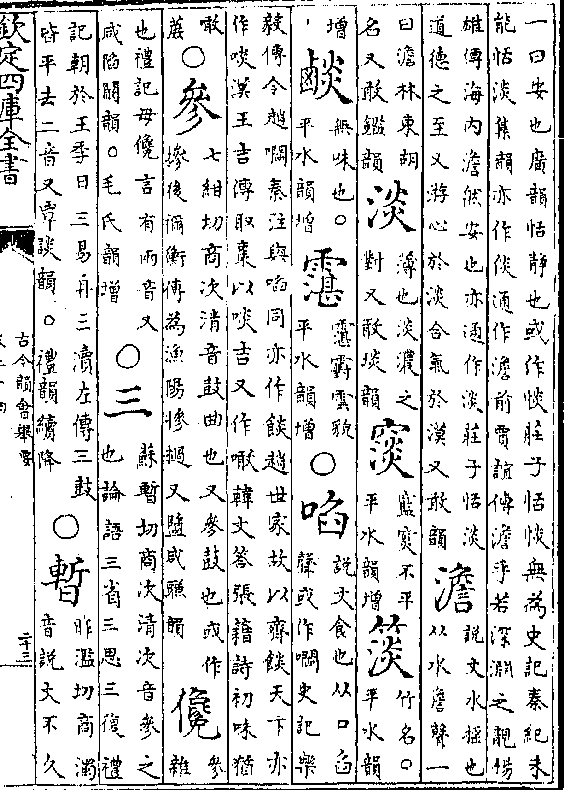 一曰安也廣韻恬靜也或作惔莊子恬惔無為史記秦紀未
能恬淡集韻亦作倓通作澹前賈誼傳澹乎若深淵之靚揚
雄傳海内澹然安也亦通作淡莊子恬淡
道德之至又游心於淡合氣於漠又敢韻
澹
說文水揺也
从水詹聲一
曰澹林東胡
名又敢鑑韻
淡
薄也淡濃之
對又敢琰韻
不平
平水韻增
竹名○
平水韻
增
無味也○
平水韻增
霮
霮䨴雲貌
平水韻增
○啗
說文食也从口臽
聲或作嚪史記樂
毅傳令趙嚪秦注與啗同亦作餤趙世家故以齊餤天下亦
作啖漢王吉傳取棗以啖吉又作噉韓文荅張籍詩初味猶
噉
蔗
○參
七紺切商次清音鼓曲也又參鼓也或作
摻後禰衡傳為漁陽慘撾又鹽咸豏韻
儳
參
雜
也禮記毋儳言有兩音又
咸陷闞韻○毛氏韻增
○三
蘇暫切商次清次音參之
也論語三省三思三復禮
記朝於王季日三易再三瀆左傳三鼓
皆平去二音又覃談韻○禮韻續降
○暫
昨濫切商濁
音說文不久
欽定四庫全書
古今韻會舉要
二十三